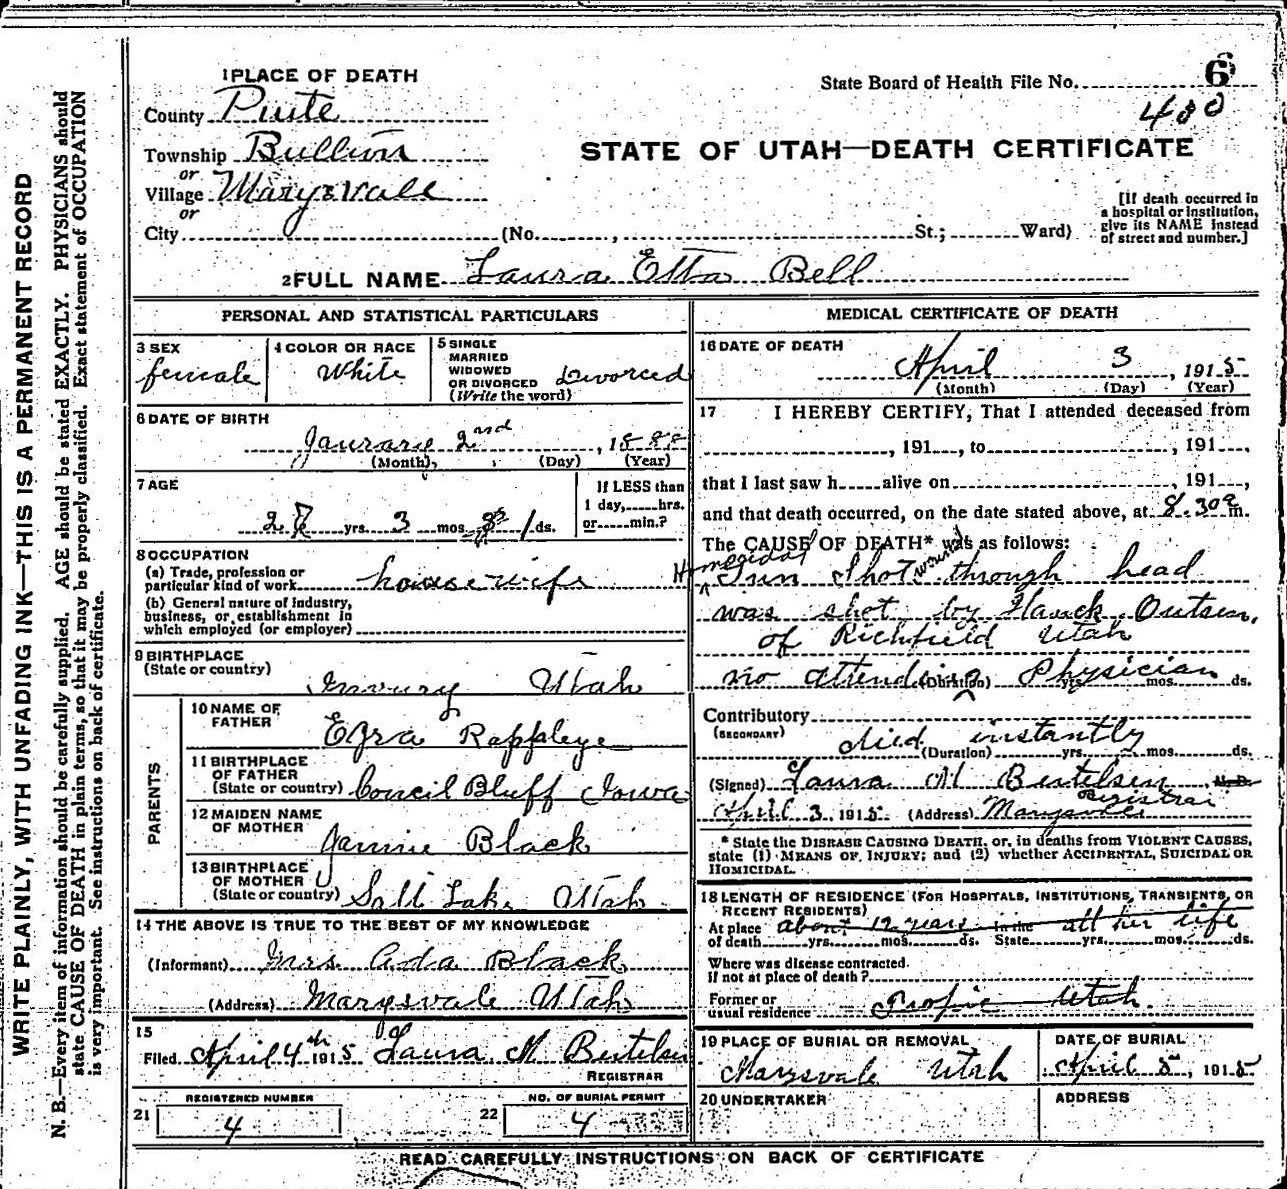 WRITE PLAINLY, WITH UNFADING INK—THIS IS A PERMANENT RECORD
N. B.—Every item of information should be carefully supplied. AGE should be stated EXACTLY. PHYSICIANS should
state CAUSE OF DEATH in plain terms, so that it may be properly classified. Exact statement of OCCUPATION
is very important. See instructions on back of certificate.
1 PLACE OF DEATH
State Board of Health File No. 6
400
County Piute
Township Bullion
or
Village Marysvale
or
City (No. , St.; Ward)
STATE OF UTAH—DEATH CERTIFICATE
[If death occurred in
a hospital or institution,
give its NAME instead
of street and number.]
2 FULL NAME Laura Etta Bell
PERSONAL AND STATISTICAL PARTICULARS
3 SEX
female
4 COLOR OR RACE
White
5 SINGLE
MARRIED
WIDOWED
OR DIVORCED
(Write the word)
Divorced
6 DATE OF BIRTH
Janurary 2nd, 1888
(Month) (Day) (Year)
7 AGE
27 yrs. 3 mos. 1 ds.
If LESS than
1 day, hrs.
or min.?
8 OCCUPATION
(a) Trade, profession or
particular kind of work housewife
(b) General nature of industry,
business, or establishment in
which employed (or employer)
9 BIRTHPLACE
(State or country)
Utah
PARENTS
10 NAME OF
FATHER
Ezra Rappleye
11 BIRTHPLACE
OF FATHER
(State or country) Concil Bluff Iowa
12 MAIDEN NAME
OF MOTHER
Jannie Black
13 BIRTHPLACE
OF MOTHER
(State or country) Salt Lake Utah
14 THE ABOVE IS TRUE TO THE BEST OF MY KNOWLEDGE
(Informant) Mrs Ada Black
(Address) Marysvale Utah
15
Filed April 4th 1915 Laura M Bertelsen
REGISTRAR
REGISTERED NUMBER
21 4
NO. OF BURIAL PERMIT
22 4
MEDICAL CERTIFICATE OF DEATH
16 DATE OF DEATH
April 3, 1915
(Month) (Day) (Year)
17 I HEREBY CERTIFY, That I attended deceased from
, 191 , to , 191 ,
that I last saw h alive on , 191 ,
and that death occurred, on the date stated above, at 8.30 a m.
The CAUSE OF DEATH* was as follows:
Homecidal Gun Shot wound through head
was shot by Hanck Outsen,
of Richfield Utah
no attending Physician
(Duration) yrs. mos. ds.
Contributory
(SECONDARY)
died instantly
(Duration) yrs. mos. ds.
(Signed) Laura M Bertelsen M.D.
Registrar
April 3, 1915 (Address) Marysvale
* State the DISEASE CAUSING DEATH, or, in deaths from VIOLENT CAUSES,
state (1) MEANS OF INJURY; and (2) whether ACCIDENTAL, SUICIDAL OR
HOMICIDAL.
18 LENGTH OF RESIDENCE (FOR HOSPITALS, INSTITUTIONS, TRANSIENTS, OR
RECENT RESIDENTS)
At place about 12 years In the all her life
of death yrs. mos. ds. State yrs. mos. ds.
Where was disease contracted.
if not at place of death?
Former or
usual residence Tropic Utah.
19 PLACE OF BURIAL OR REMOVAL
Marysvale Utah
DATE OF BURIAL
April 5, 1915
20 UNDERTAKER
ADDRESS
READ CAREFULLY INSTRUCTIONS ON BACK OF CERTIFICATE